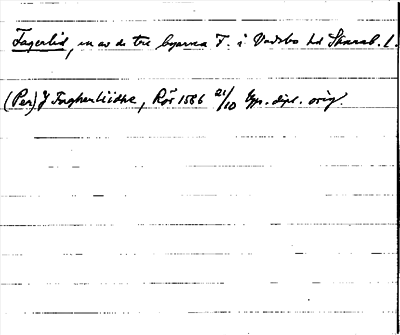 Fagerlid, en av de tre byarna F. i Vadsbo hd Skarab. l.
(Per) J Fagherliidhe, Rör 1566 21/10 Up. dipl. orig.